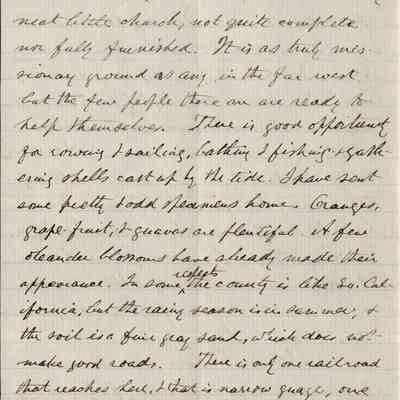 neat little church, not quite complete
nor fully furnished. It is as truly mis-
sionary ground as any in the far west
but the few people there are are ready to
help themselves. There is good opportunity
for rowing & sailing, bathing & fishing & gath-
ering shells cast up by the tide. I have sent
some pretty & odd specimens home. Oranges,
grape-fruit, & guavas are plentiful. A few
oleander blossoms have already made their
appearance. In some respects the county is like So. Cal-
ifornia, but the rainy season is in summer, &
the soil is a fine gray sand, which does not
make good roads. There is only one railroad
that reaches here, & that is narrow guage, one